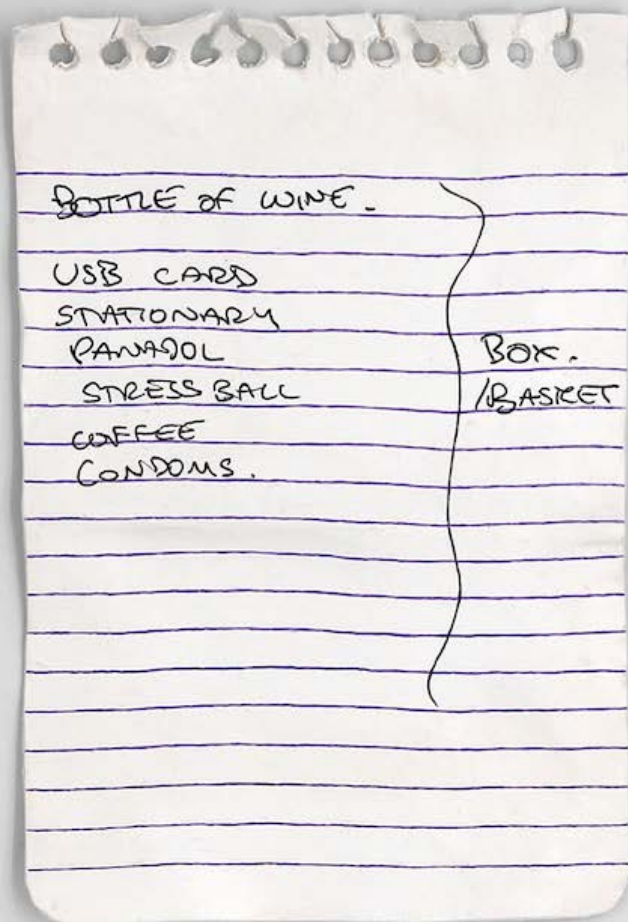 BOTTLE OF WINE.
USB CARD
STATIONARY
PANADOL
STRESS BALL
COFFEE
CONDOMS.
BOX.
/BASKET